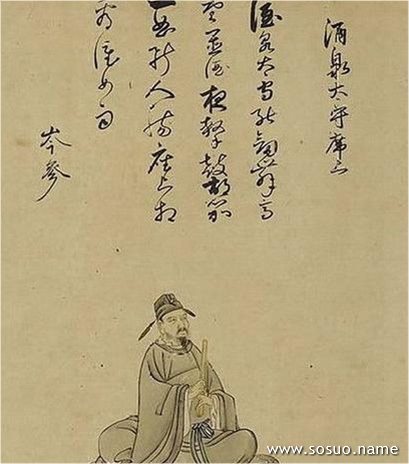 酒泉太守席上
酒泉太守能劍舞高
堂置酒夜擊鼓胡笳
一曲斷人腸座上相
看淚如雨
岑參
www.sosuo.name